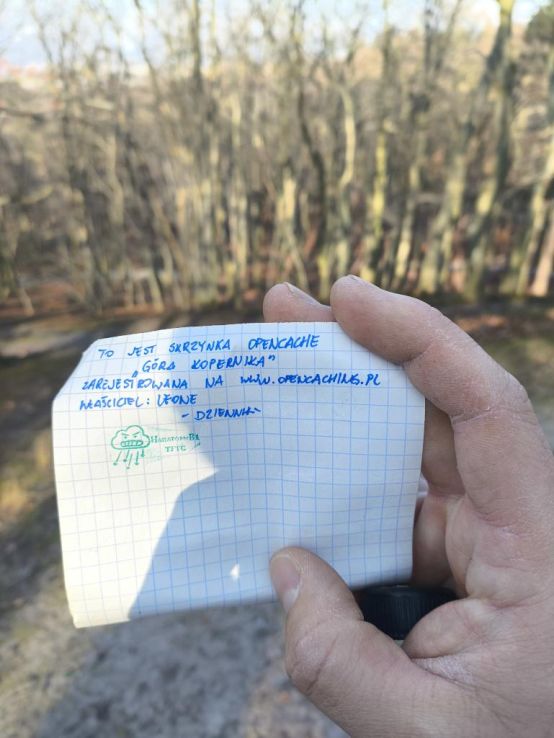 TO JEST SKRZYNKA OPENCACHE
„GÓRA KOPERNIKA"
ZAREJESTROWANA NA WWW.OPENCACHING.PL
WŁAŚCICIEL: LEONE
- DZIENNIK -
TFTC